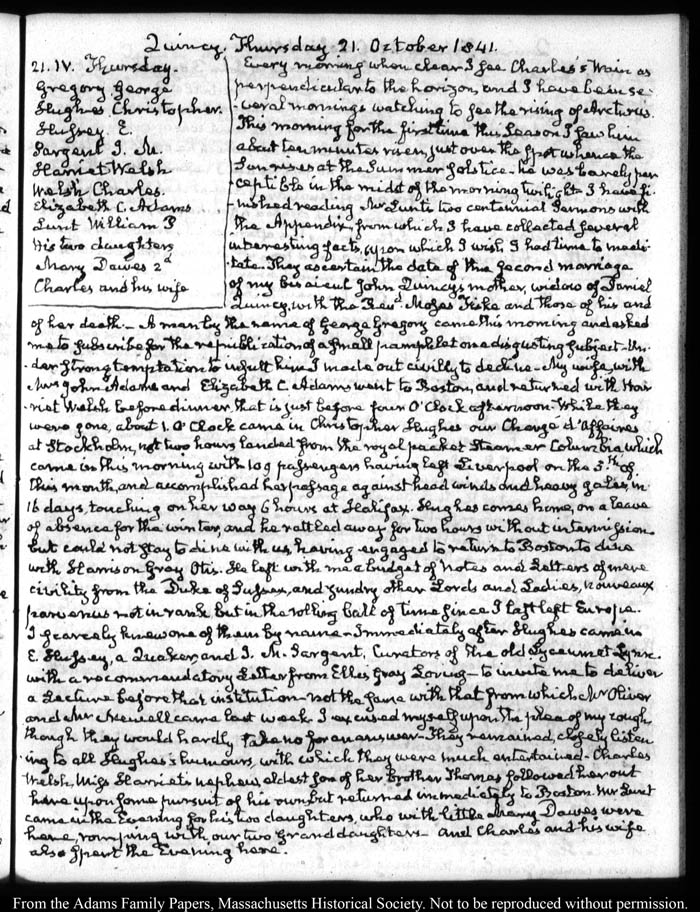 Quincy. Thursday 21. October 1841.
21. IV. Thursday.
Gregory George
Hughes Christopher.
Hussey. E.
Sargent I. M.
Harriet Welsh
Welsh Charles.
Elizabeth C. Adams
Lunt William P
His two daughters
Mary Dawes 2d
Charles and his wife
Every morning when clear I see Charles's Wain as
perpendicular to the horizon, and I have been se-
-veral mornings watching to see the rising of Arcturus.
This morning for the first time this Season I saw him
about ten minutes risen, just over the spot whence the
Sun rises at the Summer solstice - he was barely per
ceptible in the midst of the morning twilight - I have fi-
-nished reading Mr Lunt's two centennial Sermons with
the Appendix, from which I have collected several
interesting facts, upon which I wish I had time to medi-
-tate. They ascertain the date of the second marriage
of my bisaieul John Quincy's mother, widow of Daniel
Quincy, with the Revd. Moses Fiske and those of his and
of her death. - A man by the name of George Gregory came this morning and asked
me to subscribe for the republication of a small pamphlet on a disgusting subject - Un-
-der strong temptation to insult him I made out civilly to decline - My wife, with
Mrs John Adams and Elizabeth C. Adams went to Boston, and returned with Har-
riet Welsh before dinner, that is just before four O'Clock afternoon. While they
were gone, about 1. O'Clock came in Christopher Hughes our Chargé d'Affaires
at Stockholm, not two hours landed from the royal packet Steamer Columbia which
came in this morning with 109 passengers having left Liverpool on the 5th of
this month, and accomplished her passage against head winds and heavy gales, in
16 days, touching on her way 6 hours at Halifax. Hughes comes home, on a leave
of absence for the winter, and he rattled away for two hours without intermission
but could not stay to dine with us, having engaged to return to Boston to dine
with Harrison Gray Otis. He left with me a budget of Notes and Letters of mere
civility from the Duke of Sussex, and sundry other Lords and Ladies, nouveaux
parvenus not in rank but in the rolling ball of time since I last left Europe.
I scarcely knew one of them by name - Immediately after Hughes came in
E. Hussey, a Quaker, and I. M. Sargent, Curators of the old Lyceum at Lynn.
with a recommendatory Letter from Ellis Gray Loring - to invite me to deliver
a Lecture before that institution - not the same with that from which Mr Oliver
and Mr Newall came last week. I excused myself upon the plea of my cough,
though they would hardly take no for an answer - They remained, closely listen
-ing to all Hughes's humours, with which they were much entertained - Charles
Welsh, Miss Harriet's nephew, eldest son of her Brother Thomas followed her out
here upon some pursuit of his own but returned immediately to Boston. Mr Lunt
came in the Evening for his two daughters, who with little Mary Dawes were
here, romping with our two Granddaughters - and Charles and his wife
also spent the Evening here.
From the Adams Family Papers, Massachusetts Historical Society. Not to be reproduced without permission.